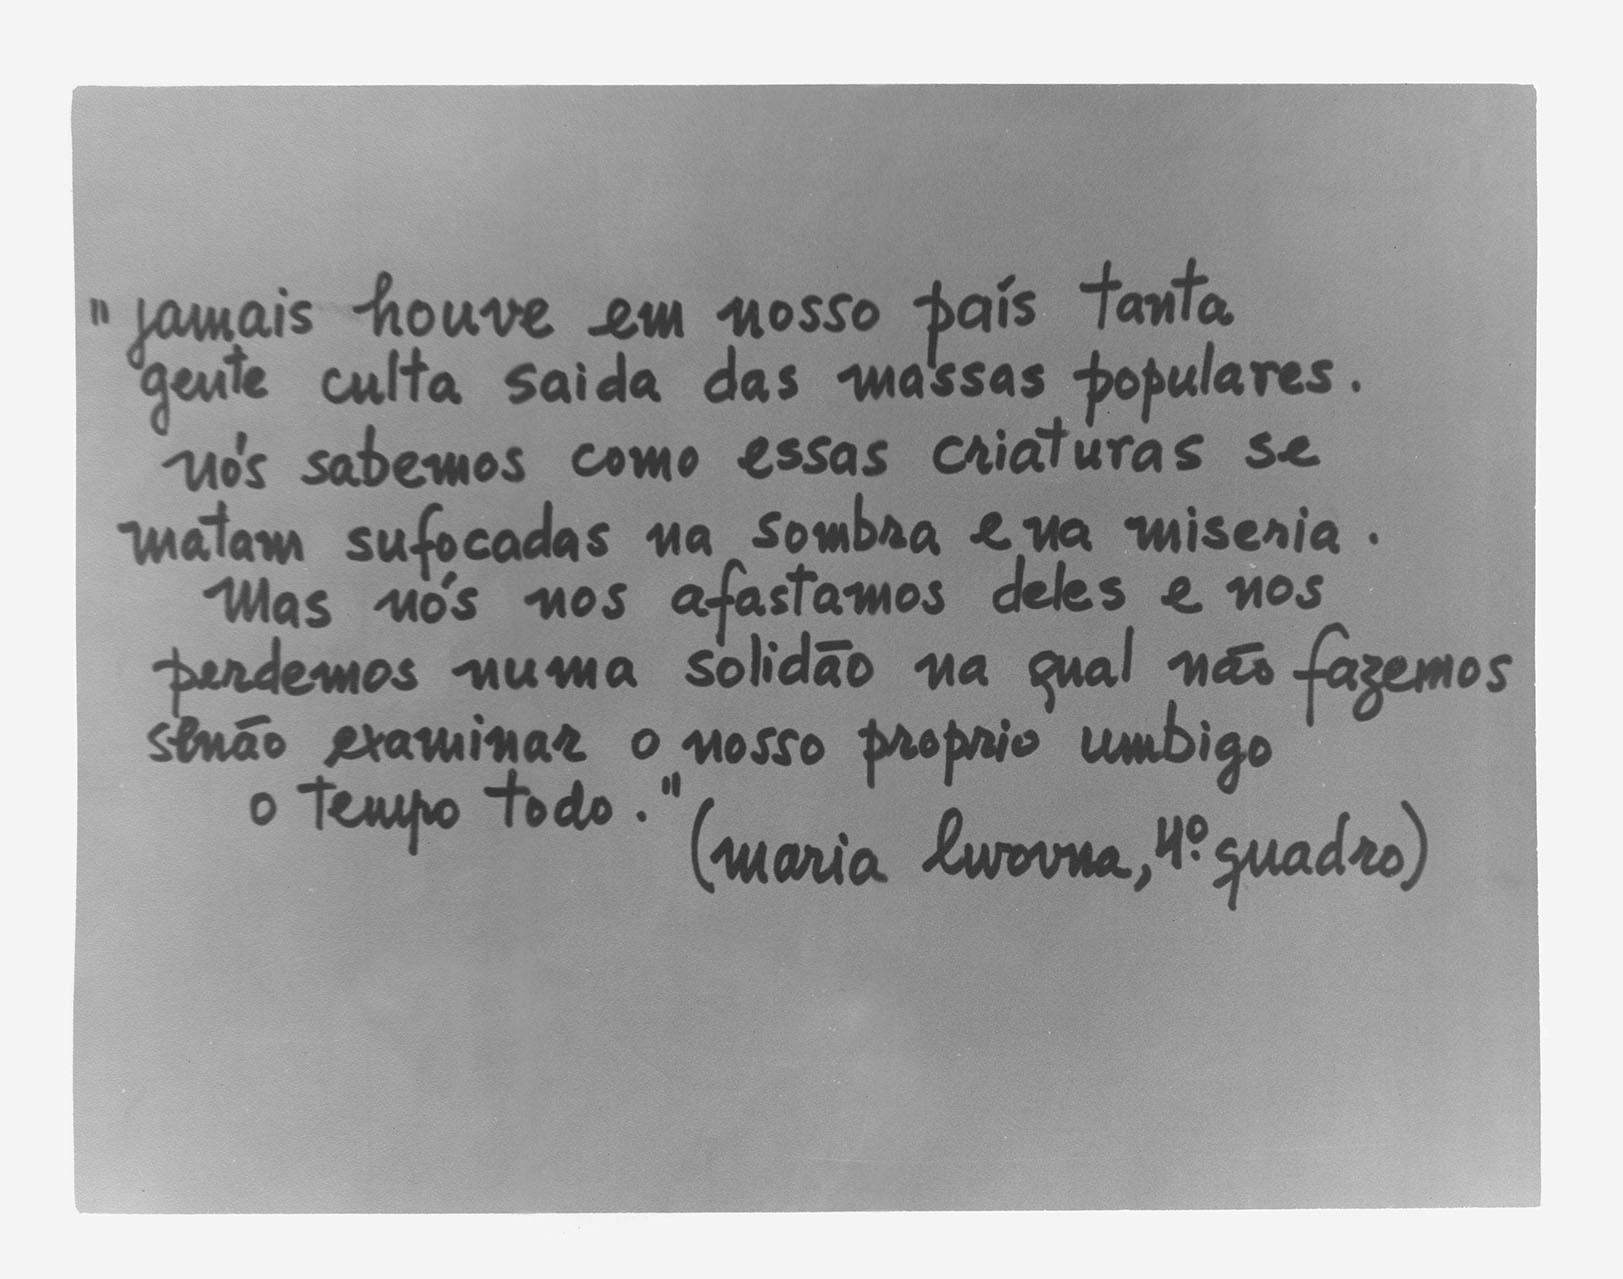 "jamais houve em nosso país tanta
gente culta saida das massas populares.
nós sabemos como essas criaturas se
matam sufocadas na sombra e na miseria.
Mas nós nos afastamos deles e nos
perdemos numa solidão na qual não fazemos
senão examinar o nosso proprio umbigo
o tempo todo."
(maria lwovna, 4º quadro)